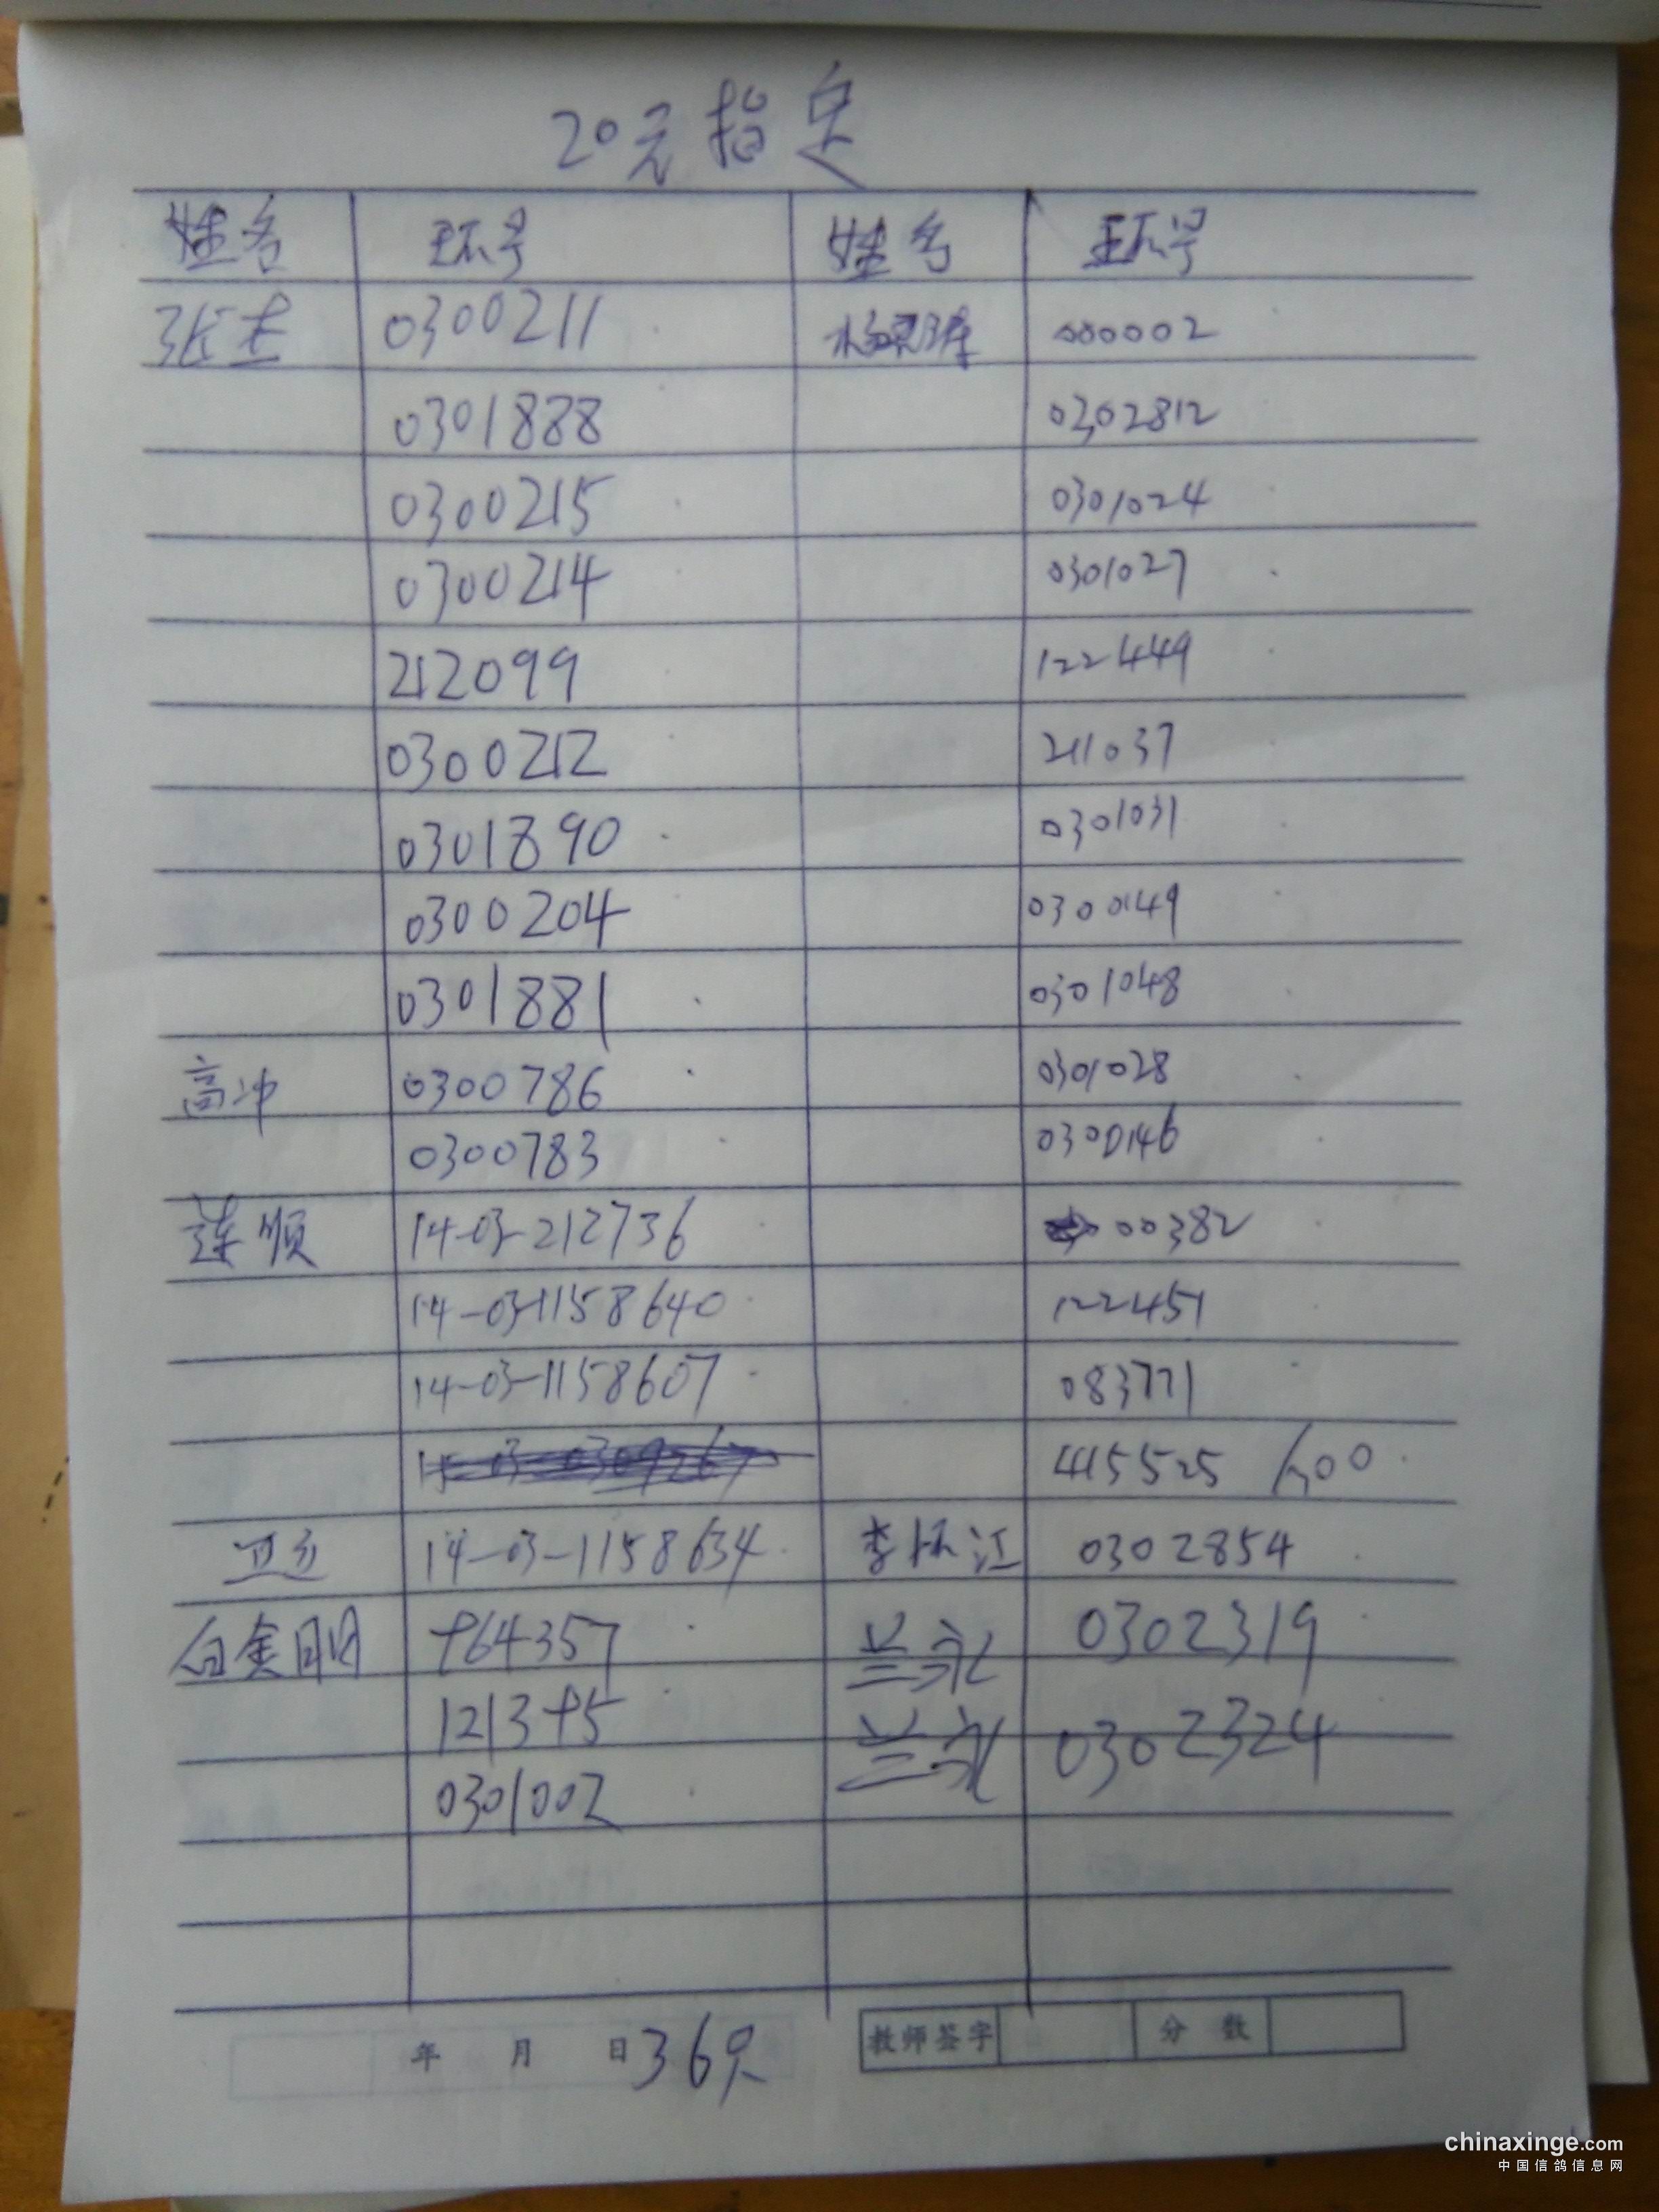 20元指定
姓名 环号 姓名 环号
张 0300211 杨 000002
0301888 0302812
0300215 0301024
0300214 0301027
212099 122449
0300212 211037
0301890 0301031
0300204 0300149
0301881 0301048
高冲 0300786 0301028
0300783 0300146
连顺 14-03-212736 00382
14-03-1158640 122451
14-03-1158607 083771
415525 600
卫 14-03-1158634 李怀江 0302854
白金明 964357 兰永 0302319
121395 兰永 0302324
0301002
年 月 日 36只 教师签字 分 数
chinaxinge.com
中国信鸽信息网